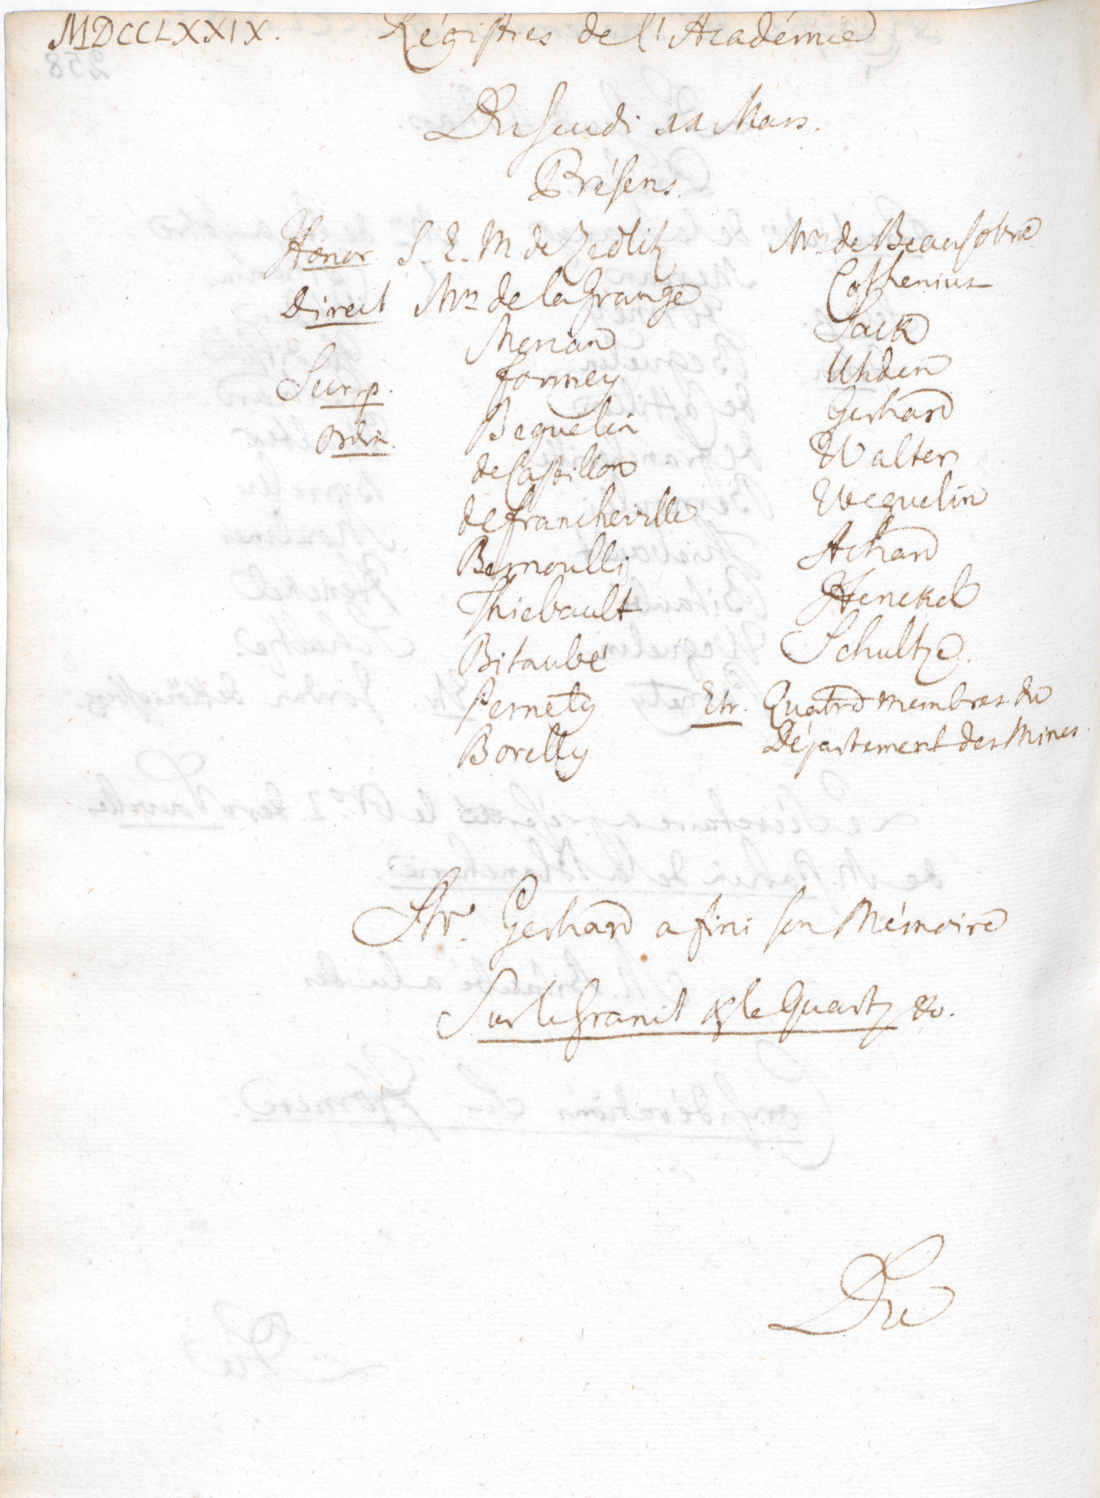 MDCCLXXIX. Régistres de l'Académie
Du Jeudi 11 Mars.
Présens.
Honor. S. E. M. de Zedlitz
Direct Mrs. de la Grange
Merian
Surp. Formey
Ordin. Beguelin
de Castillon
de Francheville
Bernoulli
Thiebault
Bitaubé
Pernety
Borelly
Mrs. de Beausobre
Cothenius
Sack
Uhden
Gerhard
Walter
Weguelin
Achard
Henckel
Schultze.
Etr. Quatre membres du
Département des Mines.
Mr. Gerhard a fini son Mémoire
Sur le Granit & le Quartz &c.
Du